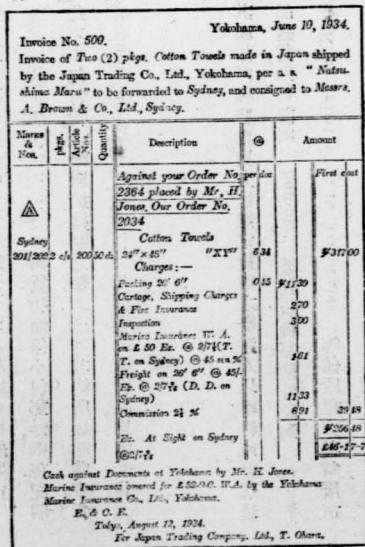 Yokohama, June 10, 1934.
Invoice No. 500.
Invoice of Two (2) pkgs. Cotton Towels made in Japan shipped
by the Japan Trading Co., Ltd., Yokohama, per s. s. "Natsu-
shima Maru" to be forwarded to Sydney, and consigned to Messrs.
A. Brown & Co., Ltd., Sydney.
Marks & Nos. pkgs. Article Nos. Quantity Description @ Amount
Against your Order No. per doz First cost
2364 placed by Mr. H.
Jones. Our Order No.
2034
Sydney Cotton Towels
201/202 2 c/s 200 50 dz 24" × 48" "XY" 6.34 ¥317.00
Charges:—
Packing 26' 6" 0.45
Cartage, Shipping Charges
& Fire Insurance 2.70
Inspection 3.00
Marine Insurance W. A.
on £ 50 Ex. @ (T.
T. on Sydney) @ 45 sen % 1.61
Freight on 26' 6" @ 45/-
Ex. @ (D. D. on
Sydney) 11.33
Commission 2½ % 8.91 39.48
Ex. At Sight on Sydney
Cash against Documents at Yokohama by Mr. H. Jones.
Marine Insurance covered for W.A. by the Yokohama
Marine Insurance Co., Ltd., Yokohama.
E. & O. E.
Tokyo, August 12, 1934.
For Japan Trading Company, Ltd., T. Ohara.